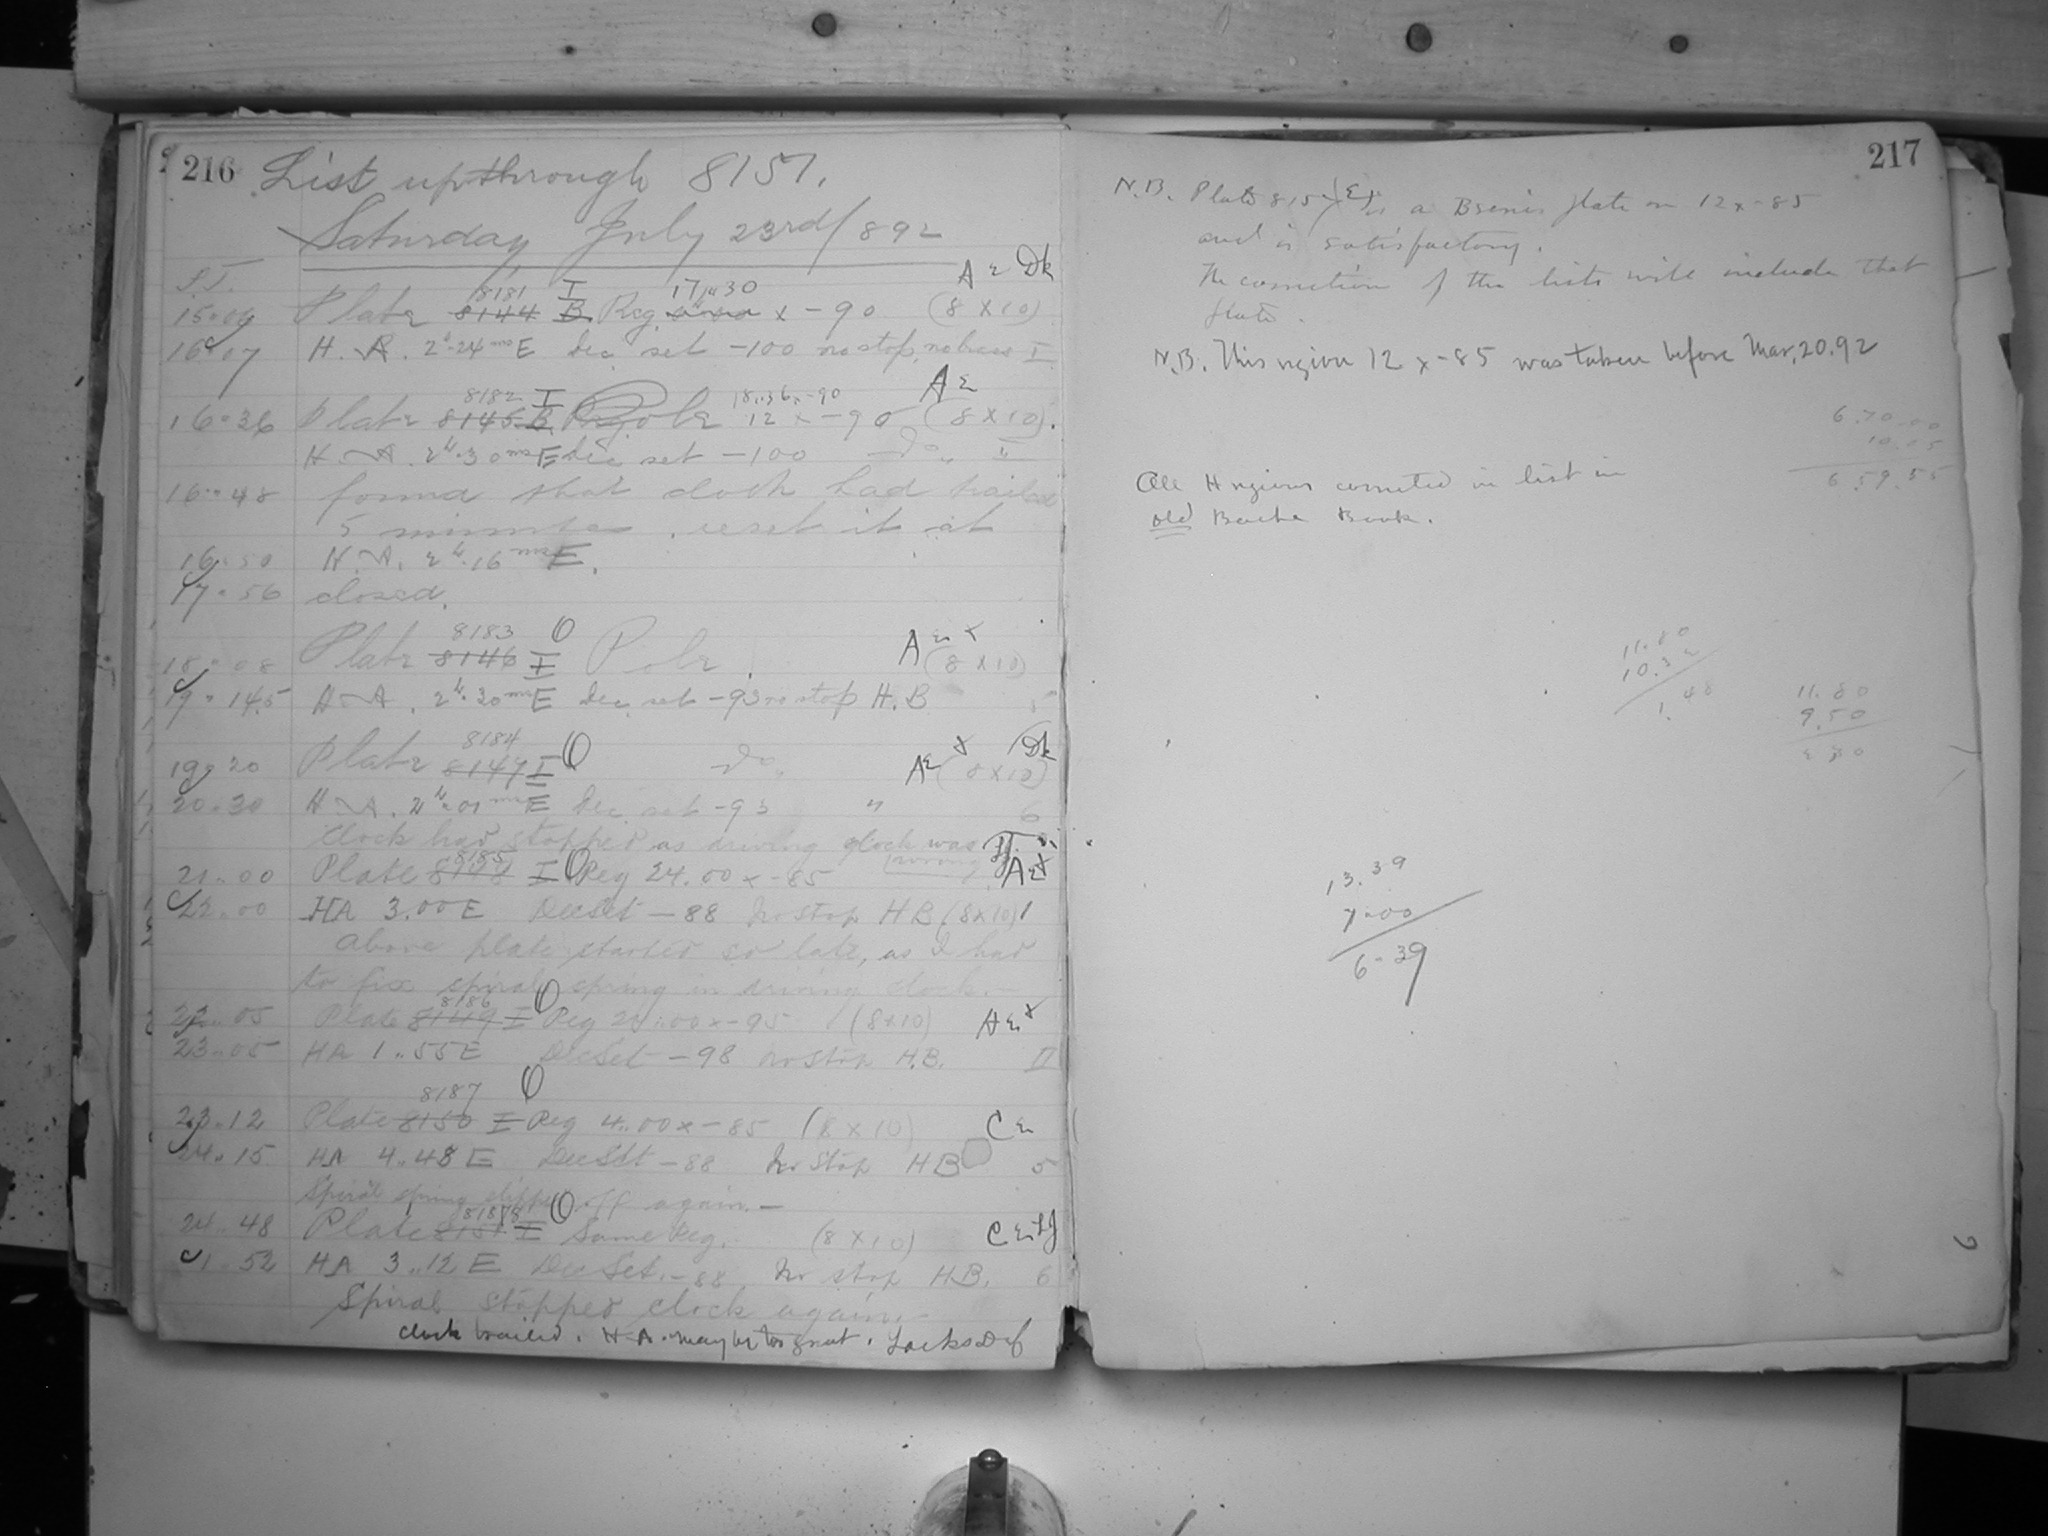 216 List up through 8157.
Saturday July 23rd/892
S.T.
A Σ Dk
8181 I 17,,30
15,,04 Plate 8144 B Reg x -90 (8 x 10)
16,,07 H.A. 2h.24ms E Dec set -100 no stop, no I
A Σ
8182 I 18.36x-90
16,,36 Plate 8145 B Pole 12 x -90 (8 x 10).
H.A. 2h.30ms E Dec set -100 Do,, II
16,,48 found that clock had trailed
5 minutes. reset it at
16,,50 H.A. 2h.16ms E.
17,,56 closed.
8183 O
18,,08 Plate 8146 I Pole. A Σ x (8 x 10)
19,,14.5 H.A. 2h.30ms E Dec set -93 no stop H.B 5
8184 O Dk
19,,20 Plate 8147 I Do,, A Σ x (8 x 10)
20,,30 H.A. 2h.01ms E Dec set -93 " 6
Clock had stopped as driving clock was
wrong
8185
21,,00 Plate 8148 I O Reg 24.00 x -85 A Σ x
22,,00 HA 3.00 E Dec Set -88 No stop HB (8x10) 1
Above plate started so late, as I had
to fix spiral spring in driving clock.-
8186 O
22,,05 Plate 8149 I Reg 20,,00 x -95 (8x10) A Σ x
23,,05 HA 1,,55 E Dec Set -98 No stop H.B. II
8187 O
23,,12 Plate 8150 I Reg 4,,00 x -85 (8 x 10) C Σ
24,,15 HA 4,,48 E Dec Set -88 No stop HB 5
Spiral spring slipped off again.-
8188 O
24,,48 Plate 8151 I Same Reg. (8 x 10) C Σ
1,,52 HA 3,,12 E Dec Set -88 No stop HB. 6
Spiral stopped clock again.-
Clock trailed. H.A. may be too great.
217
N.B. Plate 8157 is a plate on 12 x -85
and is satisfactory.
The correction of the lists will include that
plate.
N.B. This region 12 x -85 was taken before Mar, 20.92
6.70.00
10.05
6.59.55
All H regions corrected in list in
old Bache Book.
11.80
10.32
1.48
11.80
9.50
2 30
13.39
7.00
6.39